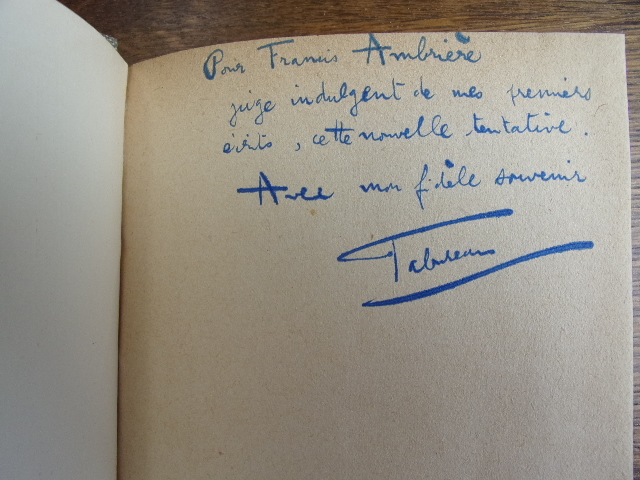 Pour Francis Ambrière
juge indulgent de mes premiers
écrits, cette nouvelle tentative.
Avec mon fidèle souvenir